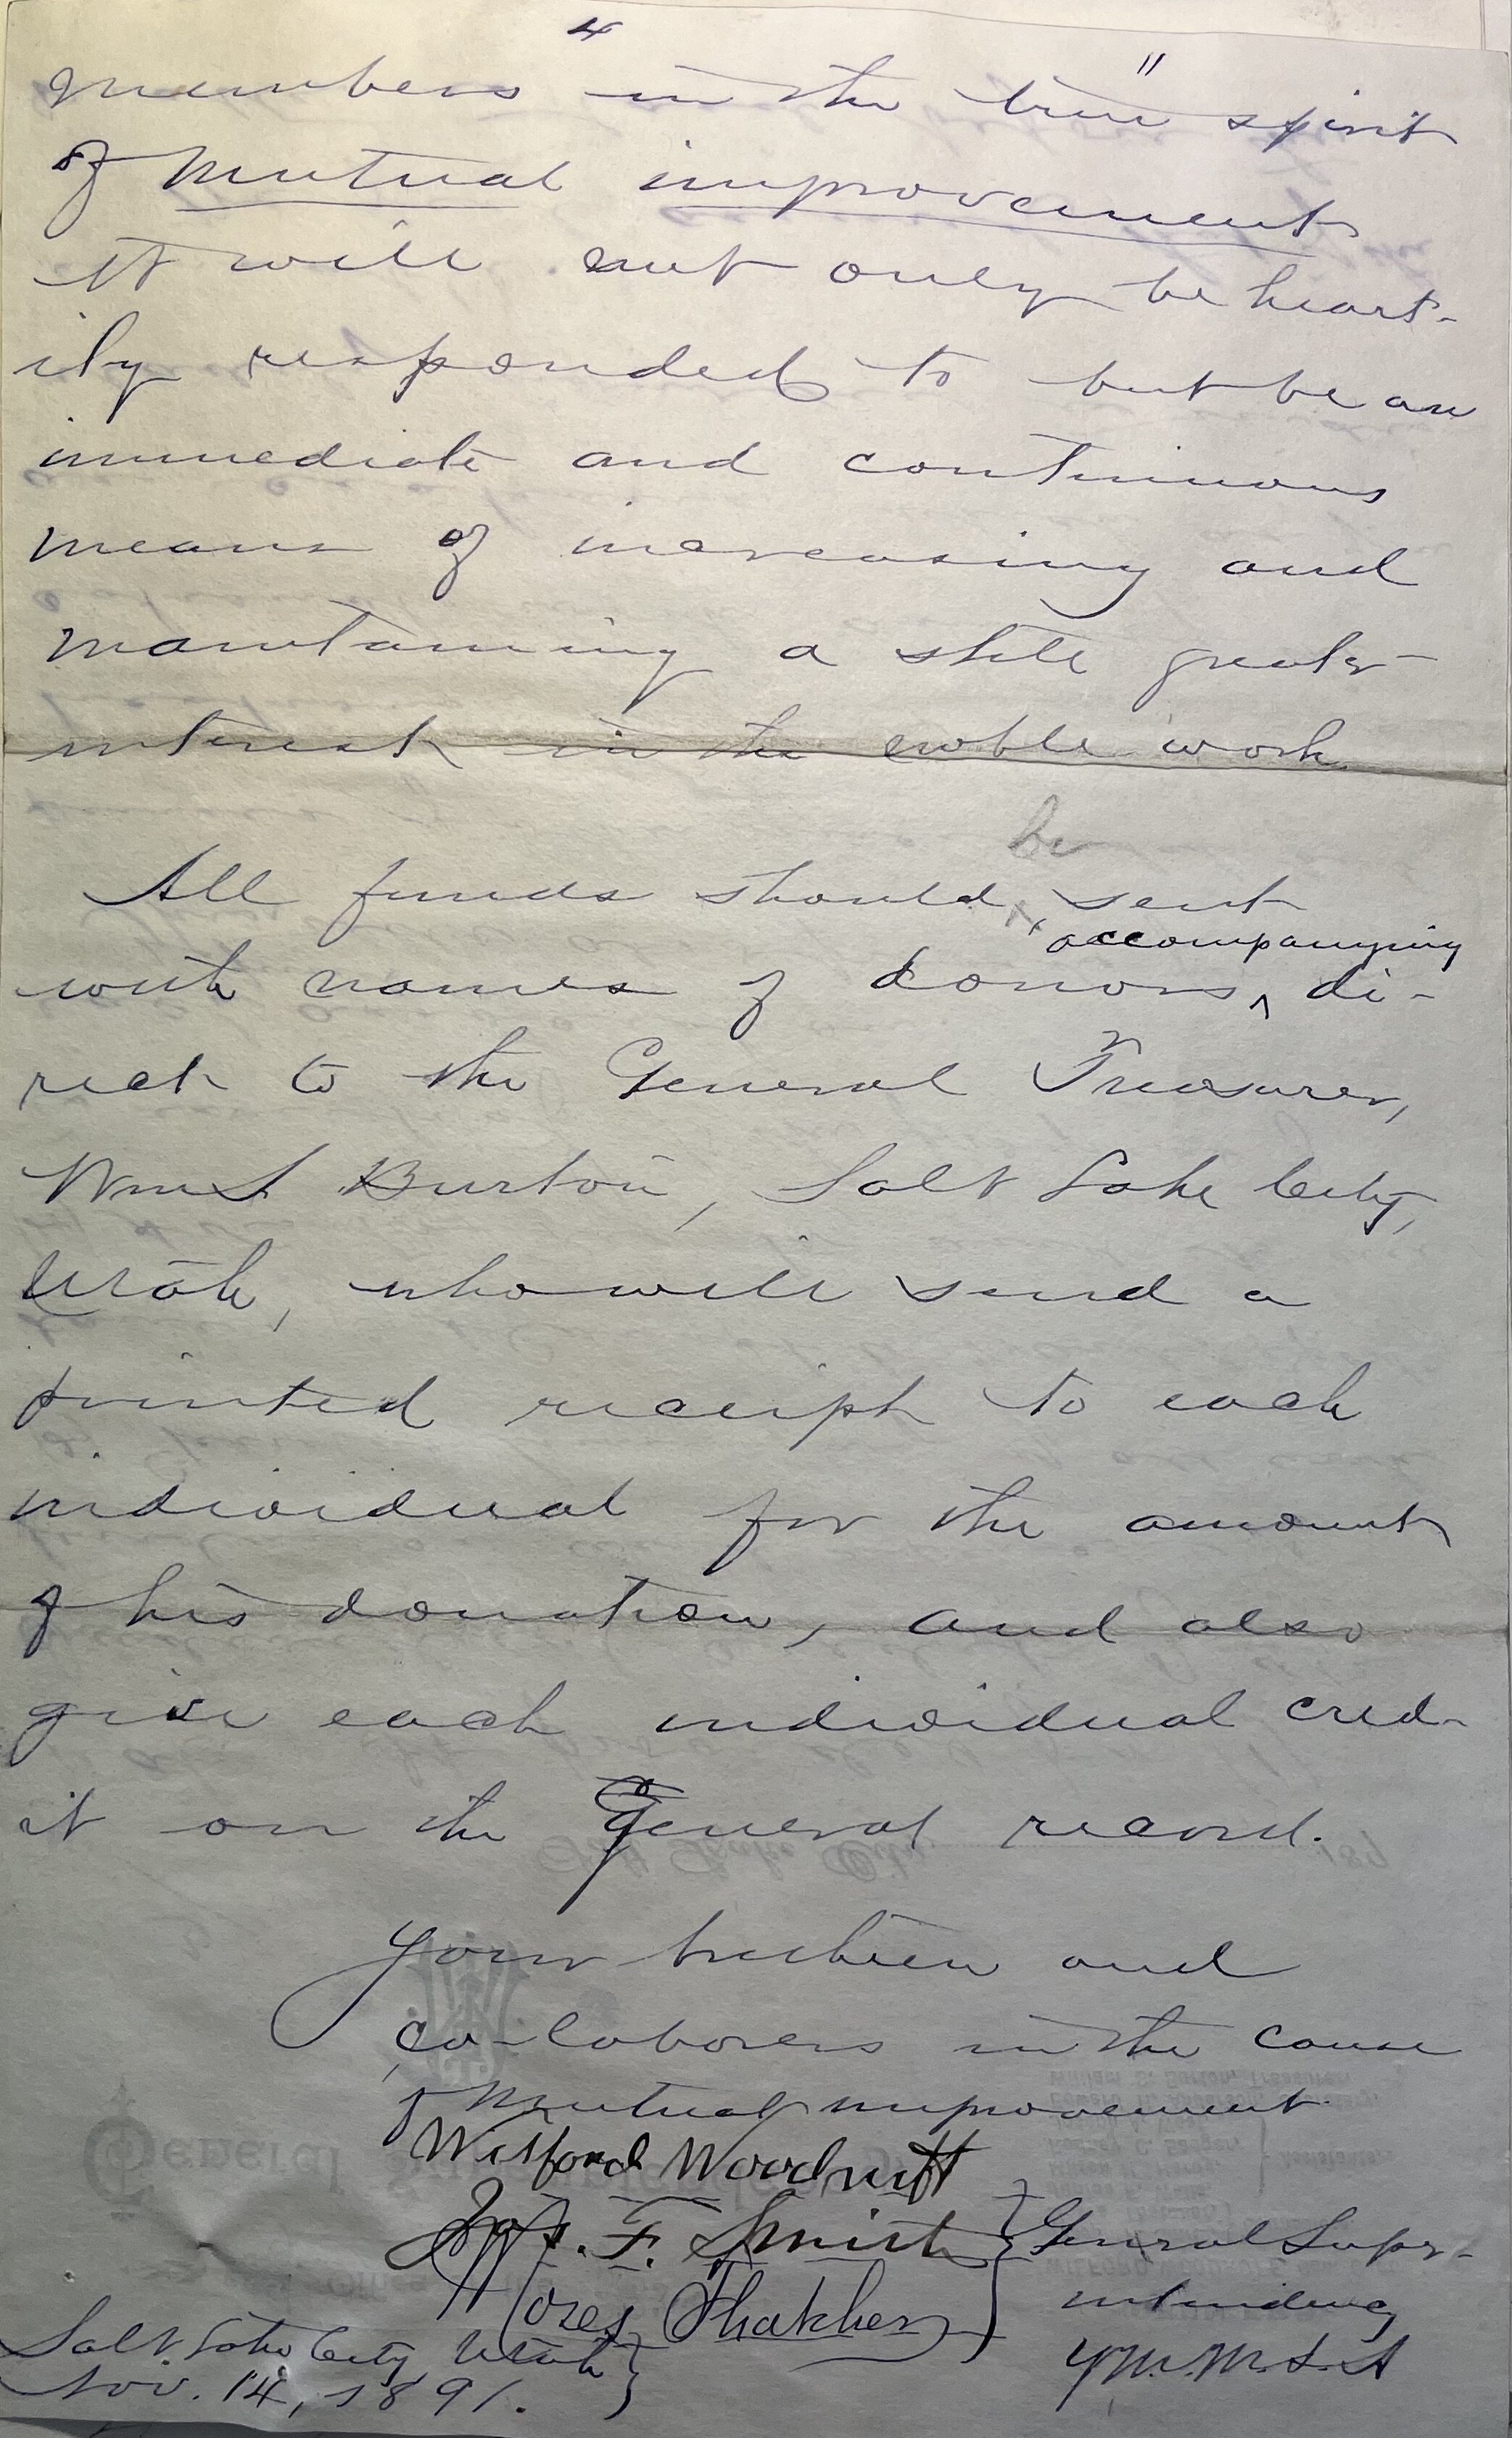 4 "
members in the true spirit
of mutual improvement
it will not only be heart-
ily responded to but be an
immediate and continuous
means of increasing and
maintaining a still greater
interest in the noble work
be
All funds should sent
accompanying
with names of donors ^ di-
rect to the General Treasurer,
Wm S Burton, Salt Lake City,
Utah, who will send a
printed receipt to each
individual for the amount
of his donation, and also
give each individual cred-
it on the General record.
Your brethren and
co-laborers in the cause
of mutual improvement
Wilford Woodruff
Jos. F. Smith } General Super-
Moses Thatcher intendency
Y.M.M.I.A
Salt Lake City Utah }
Nov. 14, 1891.